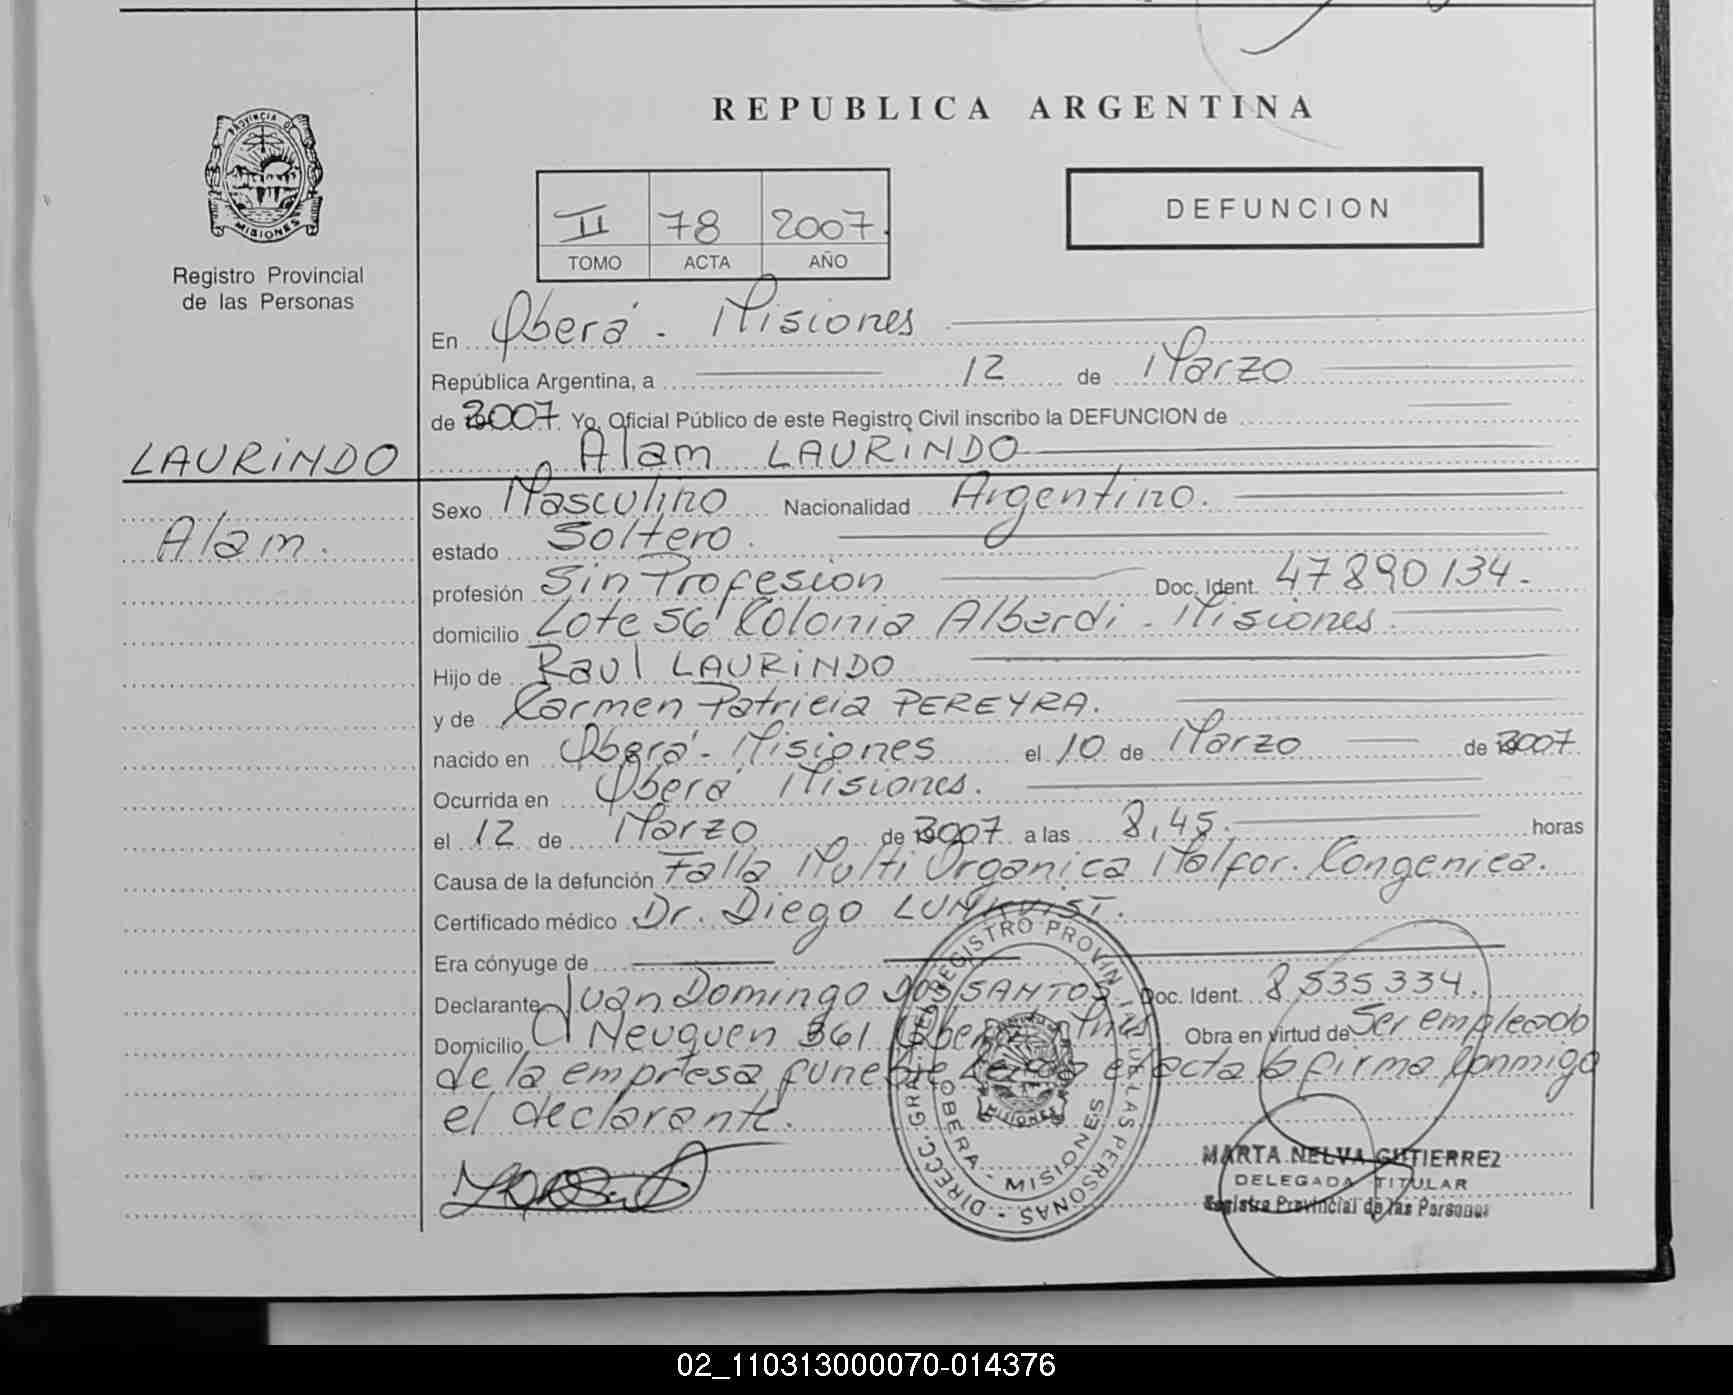 REPUBLICA ARGENTINA
PROVINCIA DE
MISIONES
Registro Provincial
de las Personas
II 78 2007
TOMO ACTA AÑO
DEFUNCION
En Oberá - Misiones
República Argentina, a 12 de Marzo
de 2007 Yo, Oficial Público de este Registro Civil inscribo la DEFUNCION de
LAURINDO
Alam LAURINDO
Alam.
Sexo Masculino Nacionalidad Argentino.
estado Soltero.
profesión Sin Profesion Doc. Ident. 47890134.
domicilio Lote 56 Colonia Alberdi - Misiones.
Hijo de Raul LAURINDO
y de Carmen Patricia PEREYRA.
nacido en Oberá - Misiones el 10 de Marzo de 2007
Ocurrida en Oberá Misiones.
el 12 de Marzo de 2007 a las 8,45. horas
Causa de la defunción Falla Multi Organica Malfor. Congenica.
Certificado médico Dr. Diego LUNKVIST.
Era cónyuge de
Declarante Juan Domingo DOS SANTOS Doc. Ident. 8535334.
Domicilio Neuquen 361 Oberá Mnes Obra en virtud de Ser empleado
de la empresa funebre Leida el acta la firma conmigo
el declarante.
DIRECC. GRAL. DEL REGISTRO PROVINCIAL DE LAS PERSONAS -
OBERA - MISIONES
MISIONES
MARTA NELVA GUTIERREZ
DELEGADA TITULAR
Registro Provincial de las Personas
02_110313000070-014376